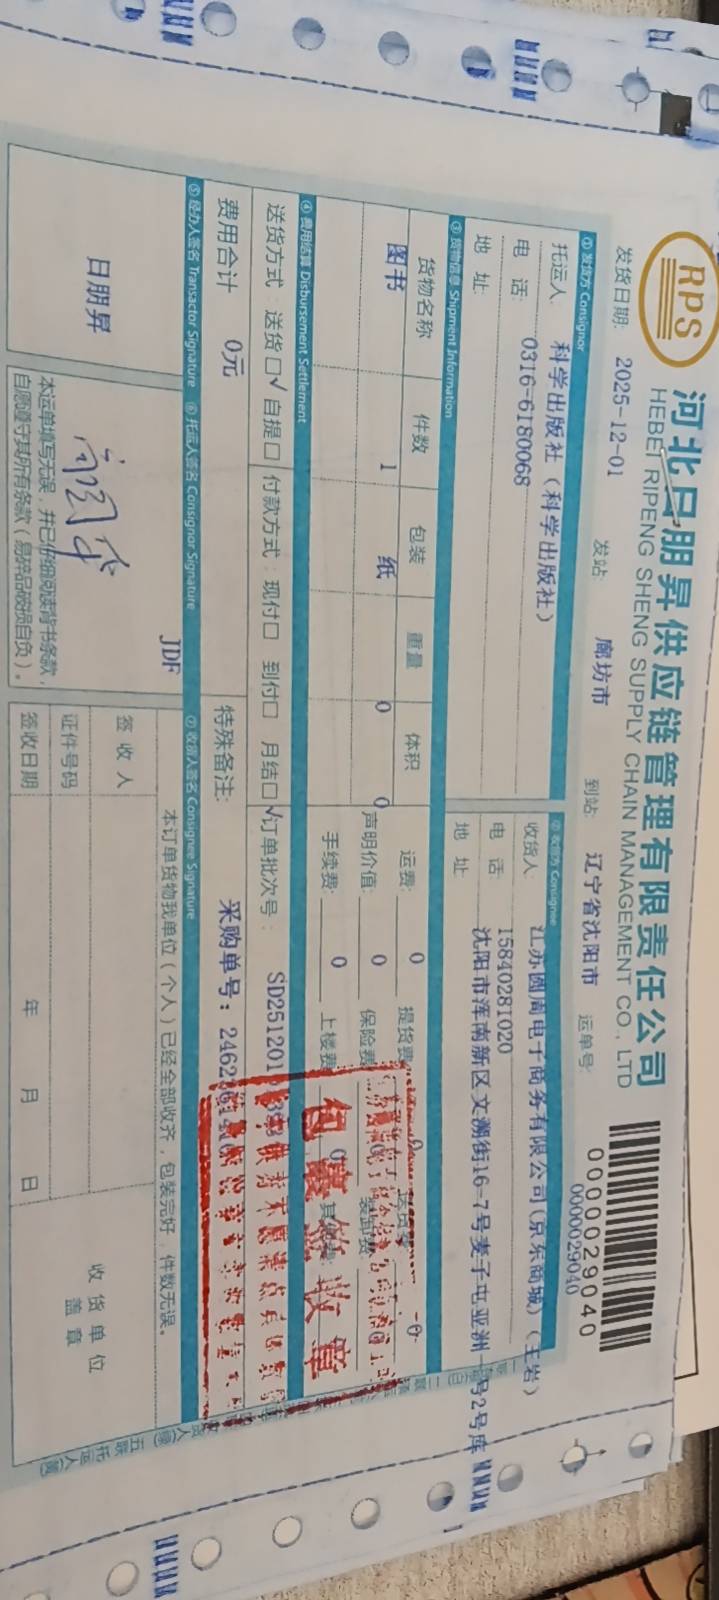 RPS
河北日朋昇供应链管理有限责任公司
HEBEI RIPENG SHENG SUPPLY CHAIN MANAGEMENT CO., LTD
0000029040
发货日期: 2025-12-01 发站: 廊坊市 到站: 辽宁省沈阳市 运单号: 0000029040
① 发货方 Consignor ② 收货方 Consignee
托运人: 科学出版社（科学出版社） 收货人: 江苏圆周电子商务有限公司(京东商城)（王岩）
电 话: 0316-6180068 电 话: 15840281020
地 址: 地 址: 沈阳市浑南新区文溯街16-7号麦子屯亚洲一号2号库
③ 货物信息 Shipment Information
货物名称 件数 包装 重量 体积 运费: 0 提货费: 0 送货费: 0
图书 1 纸 0 0 声明价值: 0 保险费: 装卸费: 0
手续费: 0 上楼费: 0
④ 费用结算 Disbursement Settlement
送货方式: 送货□√ 自提□ 付款方式: 现付□ 到付□ 月结□√ 订单批次号: SD251201
费用合计 0元 特殊备注: 采购单号:
包裹 收章
⑤ 经办人签名 Transactor Signature ⑥ 托运人签名 Consignor Signature ⑦ 收货人签名 Consignee Signature
JDF
日朋昇
本运单填写无误，并已仔细阅读背书条款，
自愿遵守其所有条款（易碎品破损自负）。
本订单货物我单位（个人）已经全部收齐，包装完好，件数无误。
签 收 人
证件号码
签收日期 年 月 日
收 货 单 位
盖 章